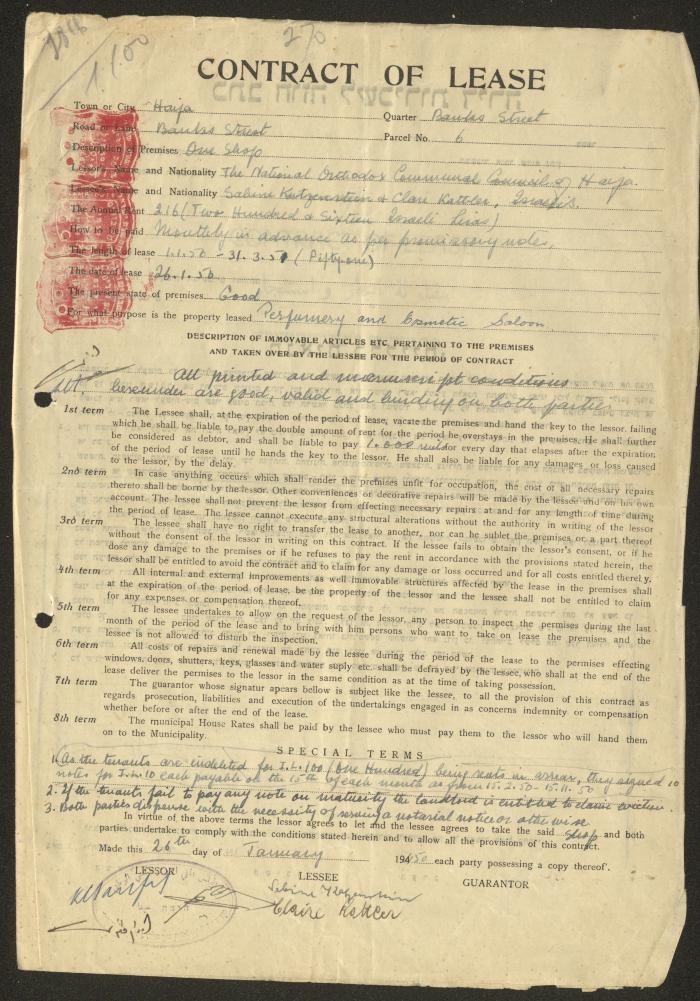 1/100
270
CONTRACT OF LEASE
Town or City Haifa
Quarter Banks Street
Road or Lane Banks Street
Parcel No. 6
Description of Premises One Shop
Lessor's Name and Nationality The National Orthodox Communal Council of Haifa.
Lessee's Name and Nationality Sabine Katzenstein & Clare Kattler, Israelis.
The Annual Rent 216 (Two Hundred & Sixteen Israeli Liras)
How to be paid Monthly in advance as per promissory notes.
The length of lease 1.1.50 - 31.3.51 (Fiftyone)
The date of lease 26.1.50
The present state of premises. Good
For what purpose is the property leased Perfumery and Cosmetic Saloon
DESCRIPTION OF IMMOVABLE ARTICLES ETC. PERTAINING TO THE PREMISES
AND TAKEN OVER BY THE LESSEE FOR THE PERIOD OF CONTRACT
All printed and manuscript conditions
hereunder are good, valid and binding on both parties
1st term The Lessee shall, at the expiration of the period of lease, vacate the premises and hand the key to the lessor. failing
which he shall be liable to pay the double amount of rent for the period he overstays in the premises. He shall further
be considered as debtor, and shall be liable to pay 1.000 mils for every day that elapses after the expiration
of the period of lease until he hands the key to the lessor. He shall also be liable for any damages or loss caused
to the lessor, by the delay.
2nd term In case anything occurs which shall render the premises unfit for occupation, the cost of all necessary repairs
thereto shall be borne by the lessor. Other conveniences or decorative repairs will be made by the lessee and on his own
account. The lessee shall not prevent the lessor from effecting necessary repairs at and for any length of time during
the period of lease. The lessee cannot execute any structural alterations without the authority in writing of the lessor
3rd term The lessee shall have no right to transfer the lease to another, nor can he sublet the premises or a part thereof
without the consent of the lessor in writing on this contract. If the lessee fails to obtain the lessor's consent, or if he
dose any damage to the premises or if he refuses to pay the rent in accordance with the provisions stated herein, the
lessor shall be entitled to avoid the contract and to claim for any damage or loss occurred and for all costs entitled therely.
4th term All internal and external improvements as well immovable structures affected by the lease in the premises shall
at the expiration of the period of lease, be the property of the lessor and the lessee shall not be entitled to claim
for any expenses or compensation thereof.
5th term The lessee undertakes to allow on the request of the lessor, any person to inspect the premises during the last
month of the period of the lease and to bring with him persons who want to take on lease the premises and the
lessee is not allowed to disturb the inspection.
6th term All costs of repairs and renewal made by the lessee during the period of the lease to the premises effecting
windows, doors, shutters, keys, glasses and water suply etc. shall be defrayed by the lessee, who shall at the end of the
lease deliver the permises to the lessor in the same condition as at the time of taking possession.
7th term The guarantor whose signatur apears bellow is subject like the lessee, to all the provision of this contract as
regards prosecution, liabilities and execution of the undertakings engaged in as concerns indemnity or compensation
whether before or after the end of the lease.
8th term The municipal House Rates shall be paid by the lessee who must pay them to the lessor who will hand them
on to the Municipality.
SPECIAL TERMS
1. As the tenants are indebted for I.L. 100 (One Hundred) being rents in arrear, they signed 10
notes for I.L. 10 each payable on the 15th of each month as from 15.2.50 - 15.11.50
2. If the tenants fail to pay any note on maturity the landlord is entitled to claim eviction.
3. Both parties dispense with the necessity of serving a notarial notice or otherwise
In virtue of the above terms the lessor agrees to let and the lessee agrees to take the said Shop and both
parties undertake to comply with the conditions stated herein and to allow all the provisions of this contract.
Made this 26th day of January 1950 each party possessing a copy thereof.
LESSOR
LESSEE
GUARANTOR
Sabine Katzenstein
Claire Kattler